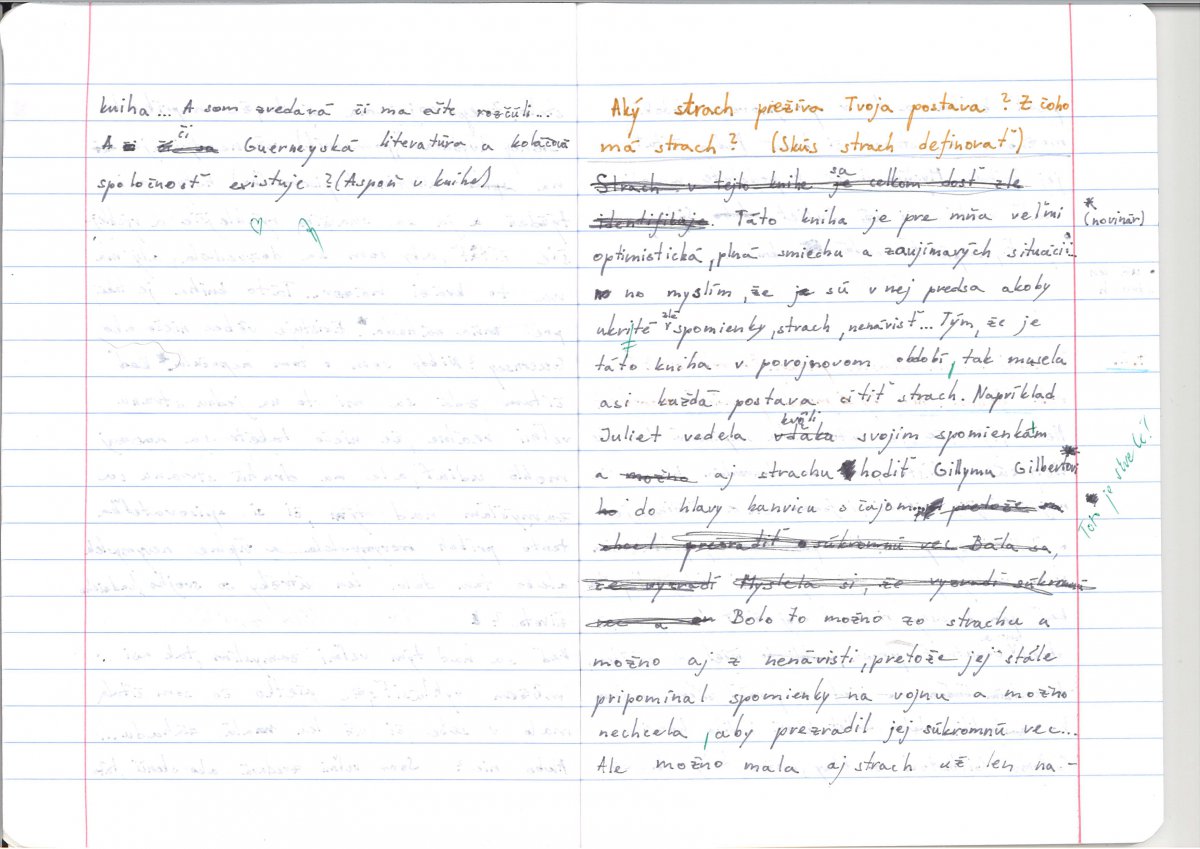 kniha... A som zvedavá či ma ešte rozčúli...
A či Guerneyská literatúra a koláčová
spoločnosť existuje? (Aspoň v knihe)
Aký strach prežíva Tvoja postava? Z čoho
má strach? (Skús strach definovať)
Strach v tejto knihe sa je celkom dosť zle
identifikuje. Táto kniha je pre mňa veľmi
* (novinár)
optimistická, plná smiechu a zaujímavých situácií..
no myslím, že je sú v nej predsa akoby
ukrité zlé spomienky, strach, nenávisť... Tým, že je
táto kniha v povojnovom období, tak musela
asi každá postava cítiť strach. Napríklad
Juliet vedela vďaka kvôli svojim spomienkam
a možno aj strachu hodiť Gillymu Gilbertovi
do hlavy kanvicu s čajom pretože sa
Toto je skvelé!
chcel prezradiť súkromnú vec Bála sa,
že vyzradí Myslela si, že vyzradí súkromnú
vec a Bolo to možno zo strachu a
možno aj z nenávisti, pretože jej stále
pripomínal spomienky na vojnu a možno
nechcela, aby prezradil jej súkromnú vec...
Ale možno mala aj strach už len na-